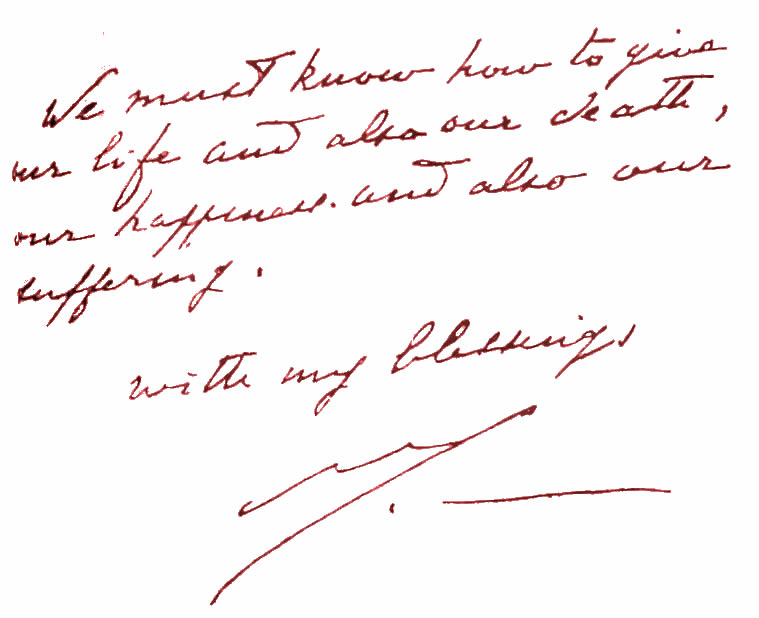 We must know how to give
our life and also our death,
our happiness and also our
suffering.
with my blessings